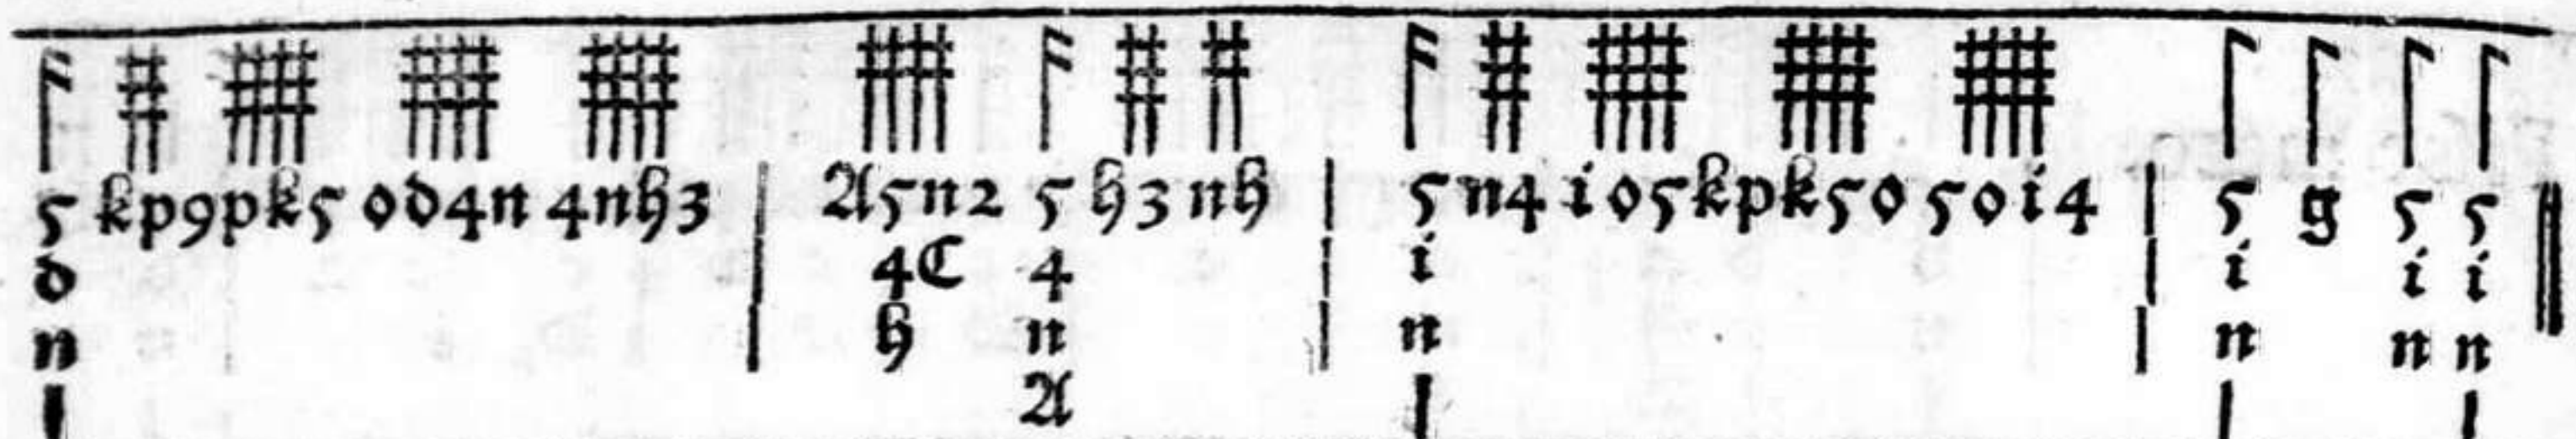 5 k p 9 p k 5 o d 4 n 4 n h 3 | A 5 n 2 5 h 3 n h | 5 n 4 i o 5 k p k 5 o 5 o i 4 | 5 g 5 5
d | 4 C 4 | i | i i i
n | h n | n | n n n
A